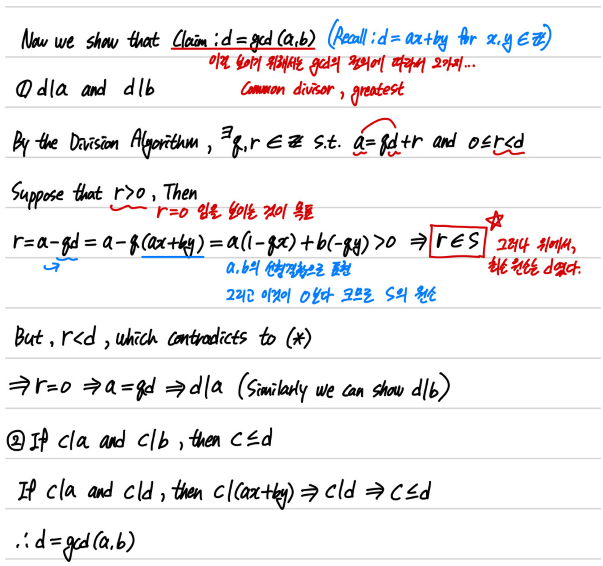 Now we show that Claim : d = gcd(a,b) (Recall : d = ax+by for x,y ∈ ℤ)
이걸 보이기 위해서는 gcd의 정의에 따라서 2가지...
① d|a and d|b
Common divisor, greatest
By the Division Algorithm, ∃q,r ∈ ℤ s.t. a=qd+r and 0≤r<d
Suppose that r>0, Then
r=0 임을 보이는 것이 목표
r=a-qd = a-q(ax+by) = a(1-qx)+b(-qy)>0 ⇒ r∈S ☆
그러나 위에서,
최소 원소는 d였다.
a,b의 선형결합으로 표현
그리고 이것이 0보다 크므로 S의 원소
But, r<d, which contradicts to (*)
⇒ r=0 ⇒ a=qd ⇒ d|a (Similarly we can show d|b)
② If c|a and c|b, then c≤d
If c|a and c|d, then c|(ax+by) ⇒ c|d ⇒ c≤d
∴ d=gcd(a,b)